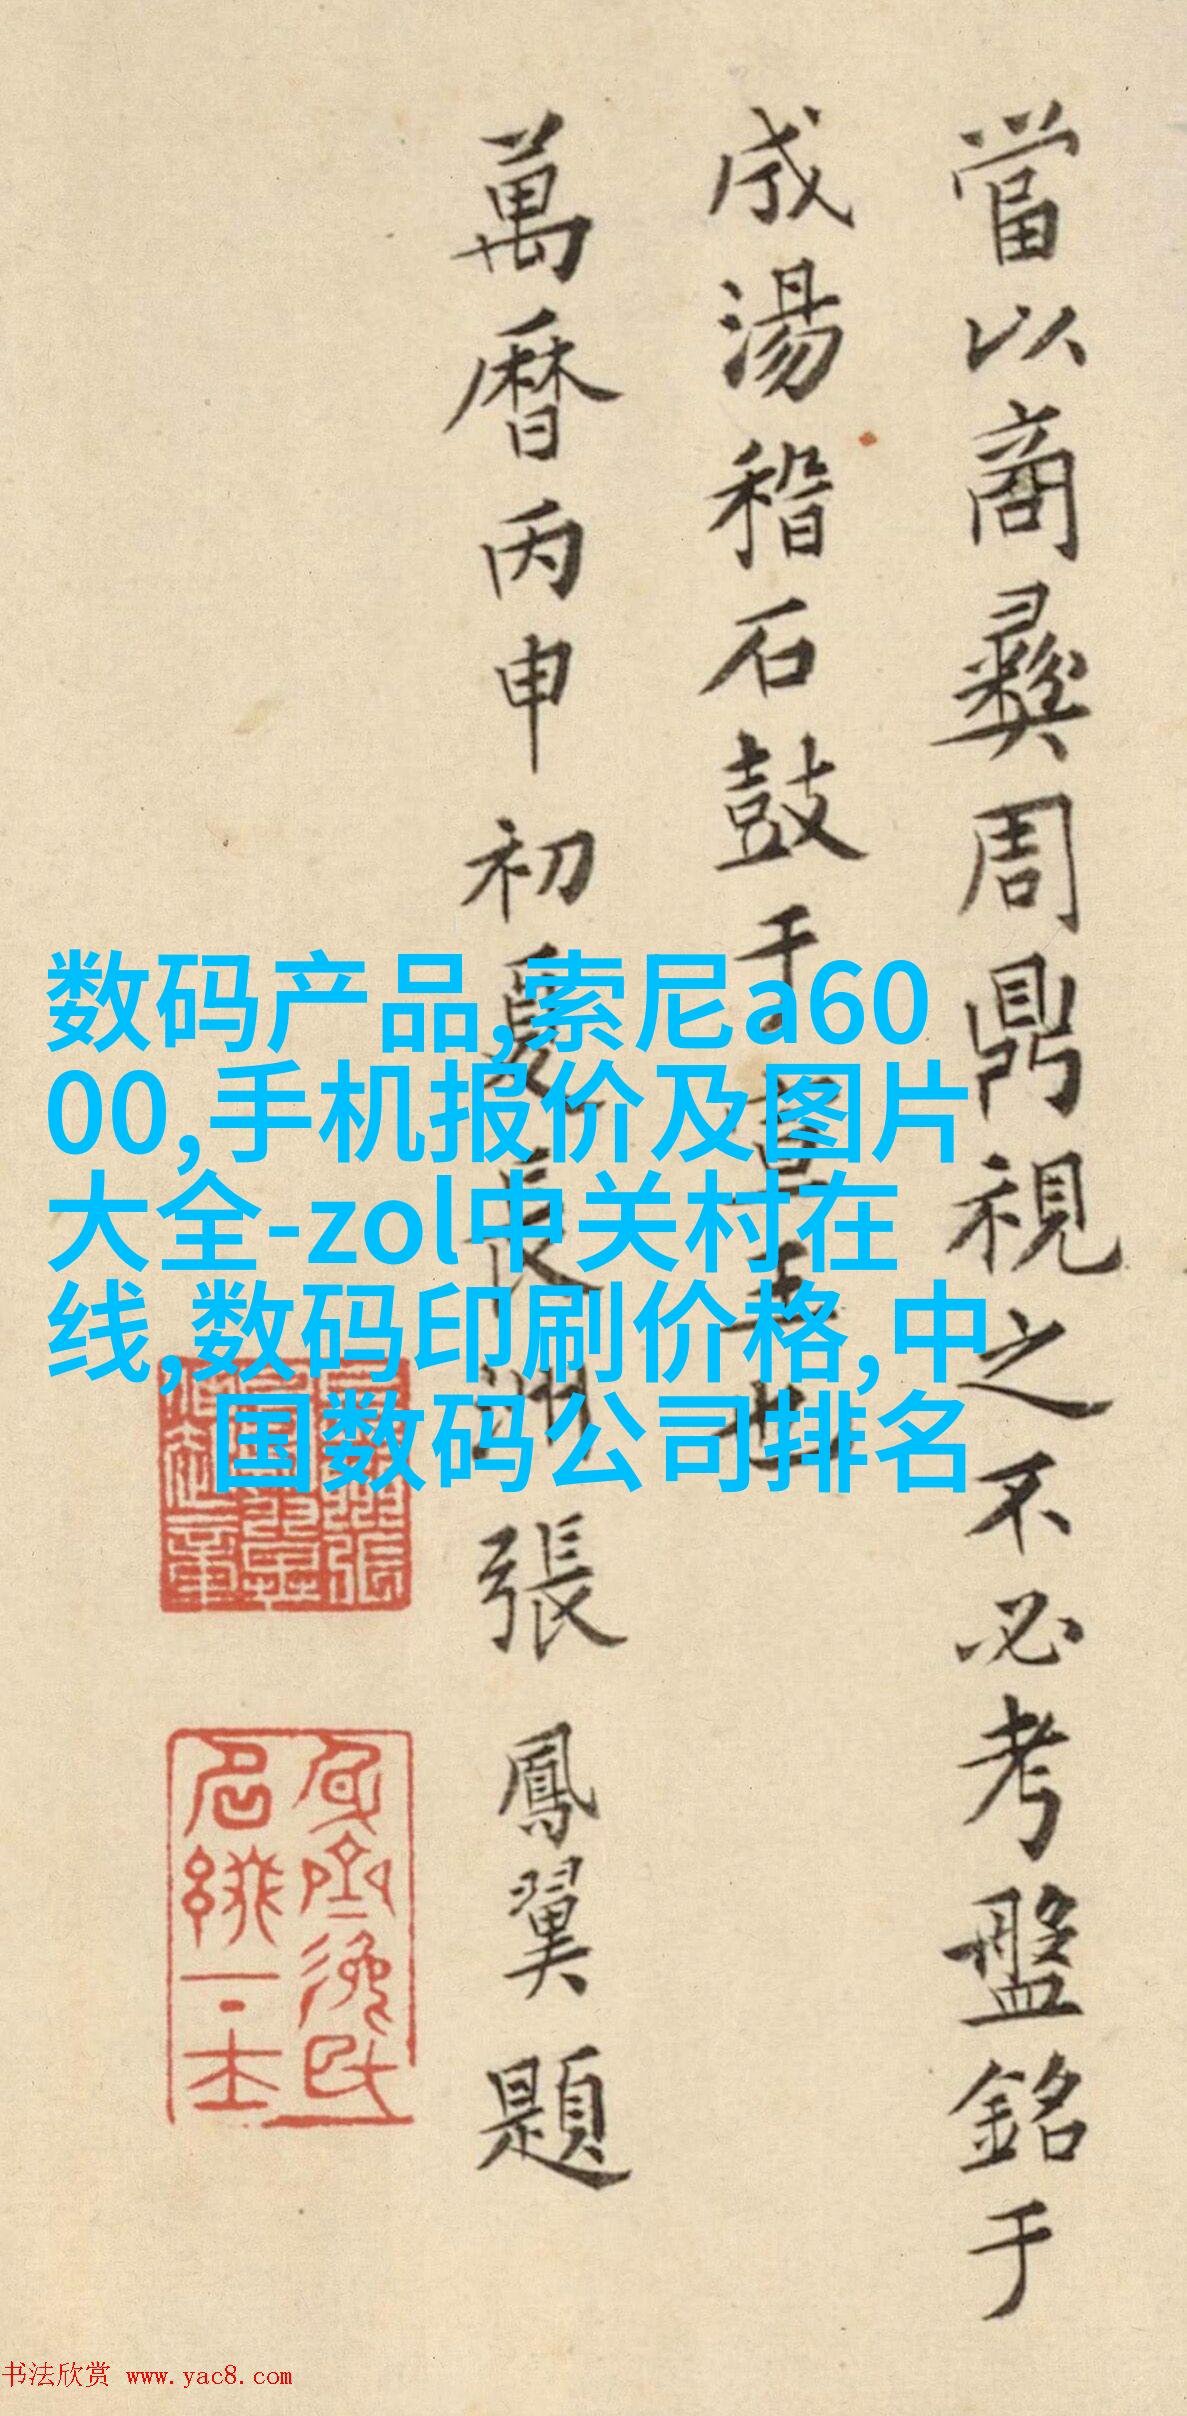 當以商彝周鼎視之不必考盤銘于
成湯稽石鼓于宣王也
萬曆丙申初夏長洲張鳳翼題
数码产品,索尼a60
00,手机报价及图片
大全-zol中关村在
线,数码印刷价格,中
国数码公司排名
书法欣赏 www.yac8.com